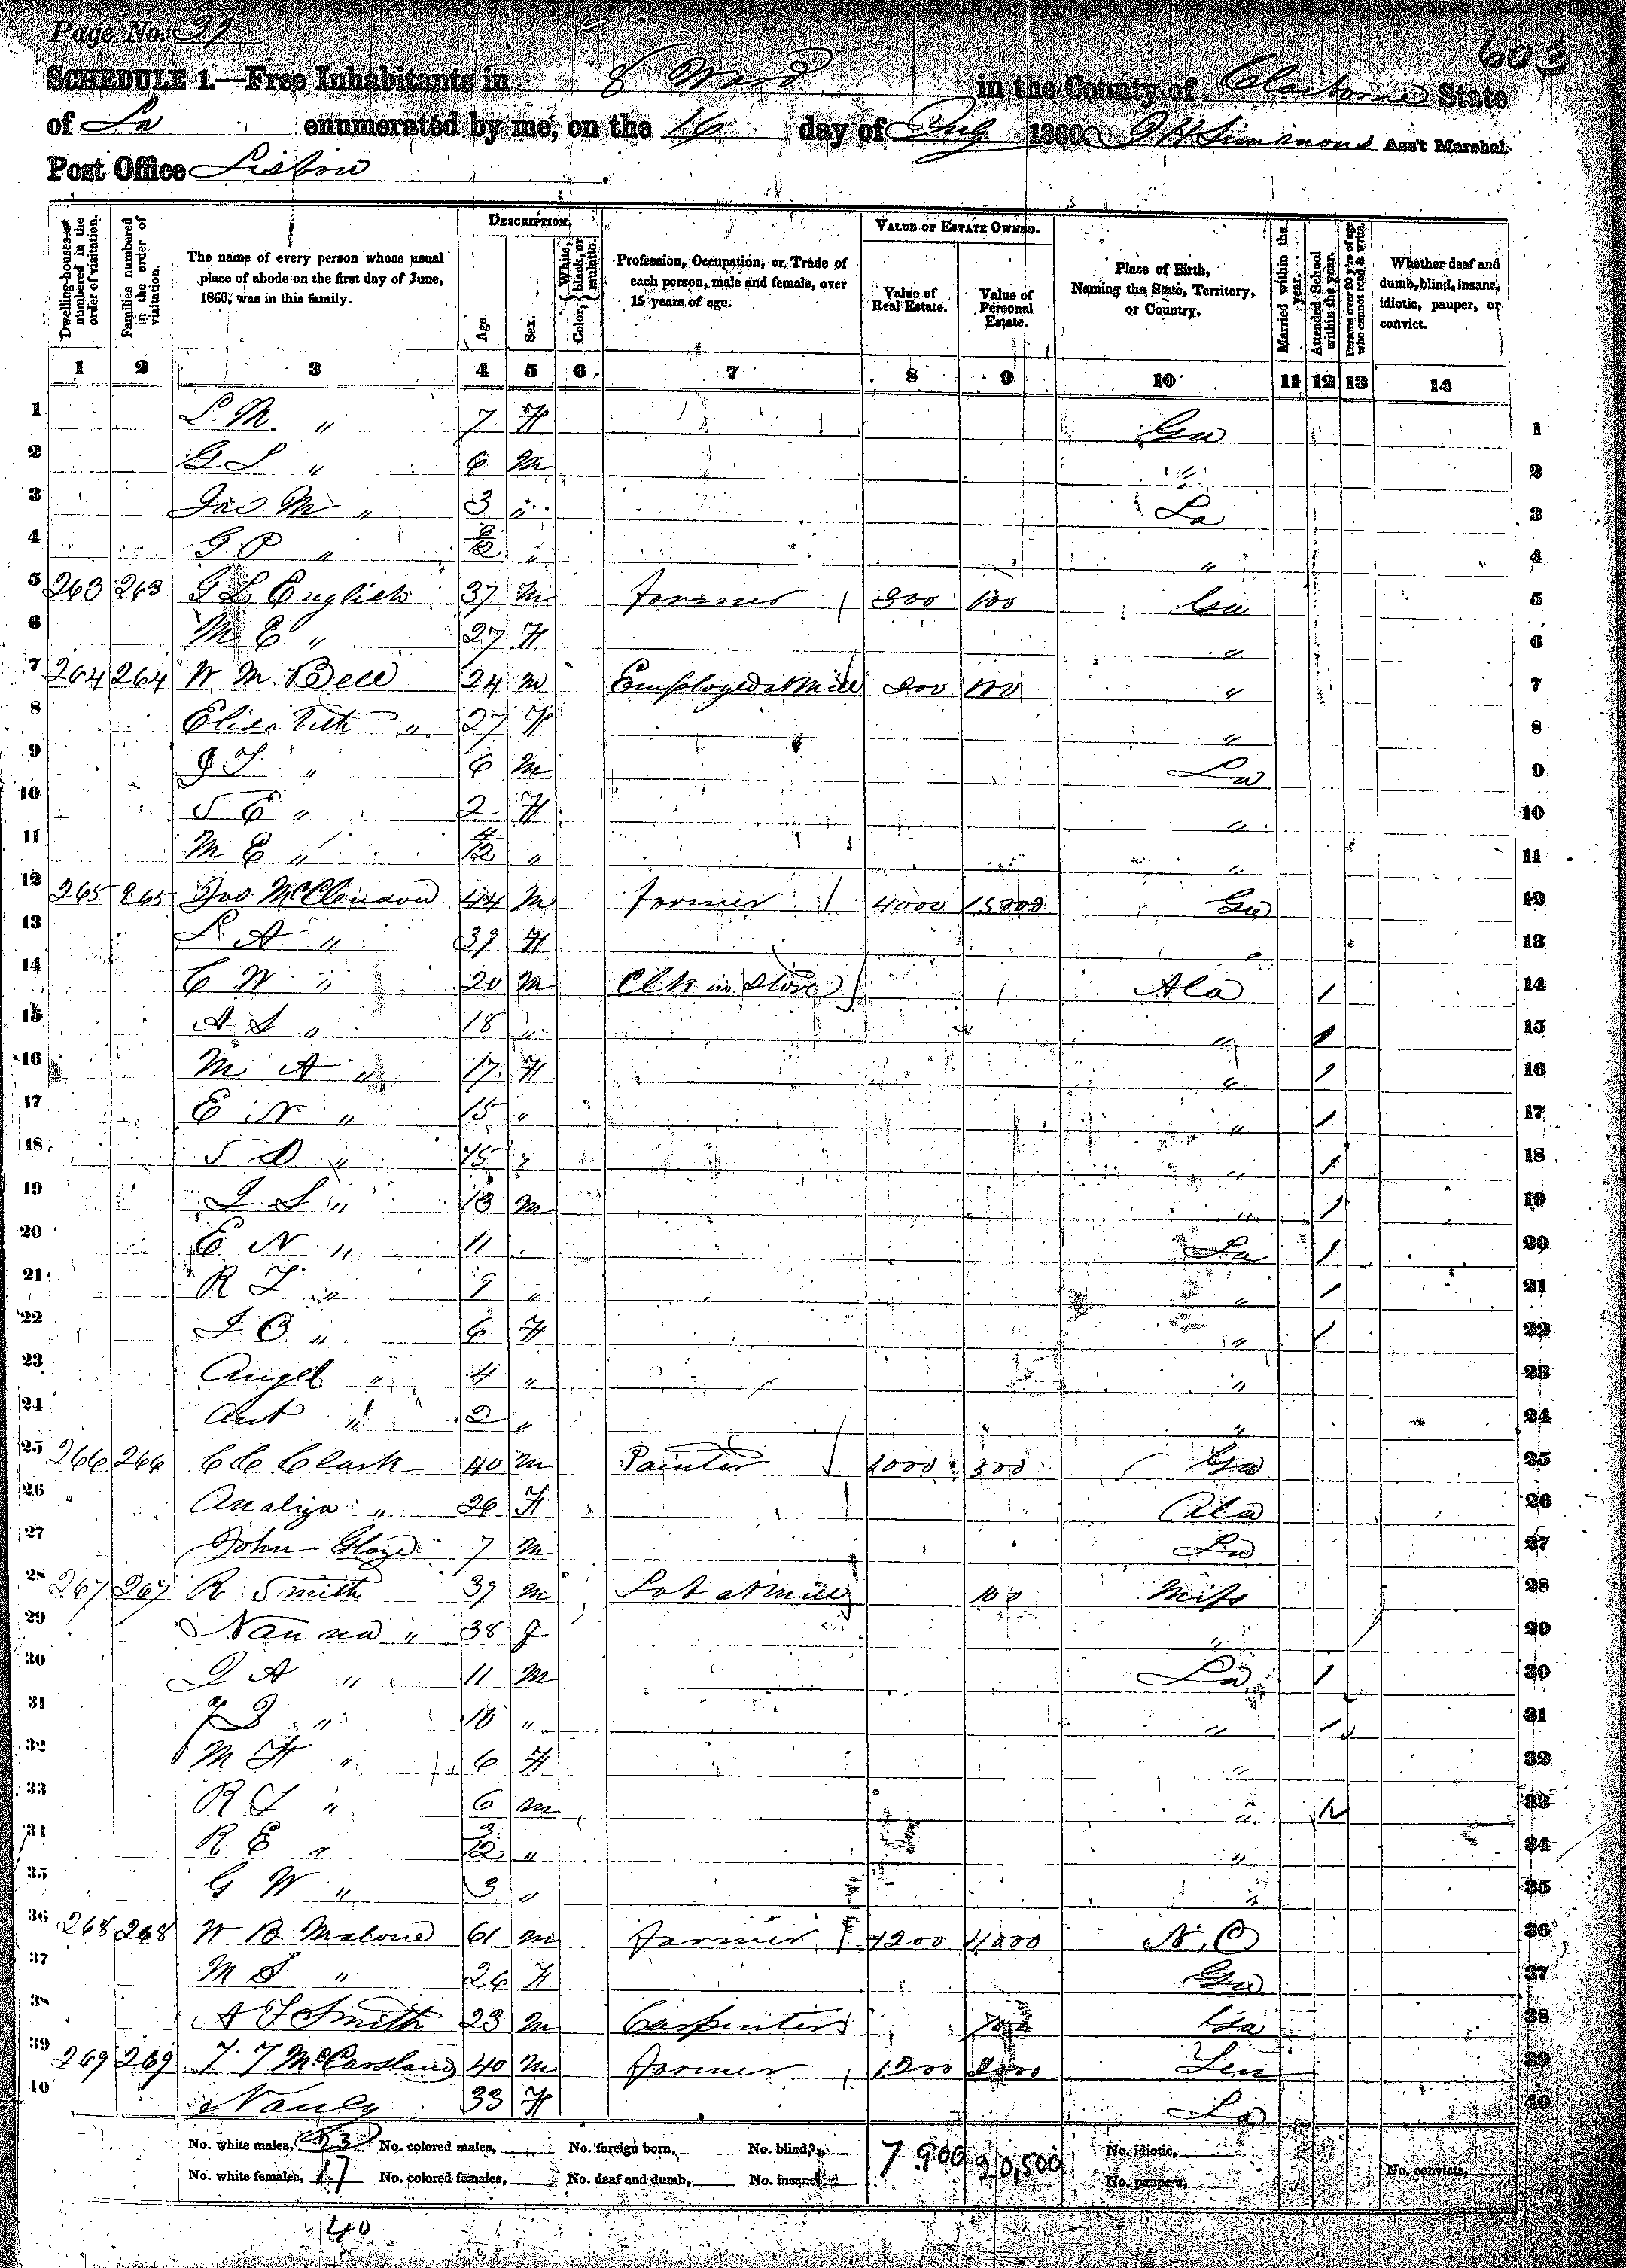 Page No. 39
603
SCHEDULE 1.—Free Inhabitants in 8 Ward in the County of Claiborne State
of La enumerated by me, on the 16 day of Aug 1860. J H Simmons Ass't Marshal.
Post Office Lisbon
DESCRIPTION. VALUE OF ESTATE OWNED.
Dwelling-houses numbered in the order of visitation.
Families numbered in the order of visitation.
The name of every person whose usual place of abode on the first day of June, 1860, was in this family.
Age.
Sex.
Color, White, black, or mulatto.
Profession, Occupation, or Trade of each person, male and female, over 15 years of age.
Value of Real Estate.
Value of Personal Estate.
Place of Birth, Naming the State, Territory, or Country.
Married within the year.
Attended School within the year.
Persons over 20 y'rs of age who cannot read & write.
Whether deaf and dumb, blind, insane, idiotic, pauper, or convict.
1 2 3 4 5 6 7 8 9 10 11 12 13 14
1 L. M. " 7 F Ga 1
2 G L " 6 M " 2
3 Jas M " 3 " La 3
4 G P " /12 " " 4
5 263 263 G L English 37 M farmer 100 Ga 5
6 M E " 27 F " 6
7 264 264 W M. Bell 24 M Employed at Mill 100 " 7
8 Elisabeth " 27 F " 8
9 J T " 6 M La 9
10 S E " 2 F " 10
11 M E " 4/12 " " 11
12 265 265 Jno McClendon 44 M farmer 4000 15000 Ga 12
13 L A " 39 F " 13
14 C W " 20 M Clk in Store Ala / 14
15 A S " 18 " " / 15
16 M A " 17 F " / 16
17 E N " 15 " " / 17
18 S D " 15 " " / 18
19 J S " 13 M " / 19
20 E N " 11 " La / 20
21 R T " 9 " " / 21
22 J O " 6 F " / 22
23 Angel " 4 " " 23
24 " 2 " " 24
25 266 266 C C Clark 40 M Painter 1000 300 Ga 25
26 Analiza " 26 F Ala 26
27 John 7 M La 27
28 267 267 R Smith 39 M Lab at Mill 100 Miss 28
29 " 38 f " 29
30 J A " 11 M La / 30
31 " 10 " " / 31
32 M F " 6 F " 32
33 R T " 6 M " 33
34 R E " 3/12 " " 34
35 G W " 3 " " 35
36 268 268 W B Malone 61 M farmer 1200 4000 N. C 36
37 M S " 26 F Ga 37
38 A T Smith 23 M Carpenter Ga 38
39 269 269 40 M farmer 1200 Ten 39
40 33 F La 40
No. white males, 23 No. colored males, No. foreign born, No. blind, 7900 20,500 No. idiotic,
No. white females, 17 No. colored females, No. deaf and dumb, No. insane, No. paupers, No. convicts,
40